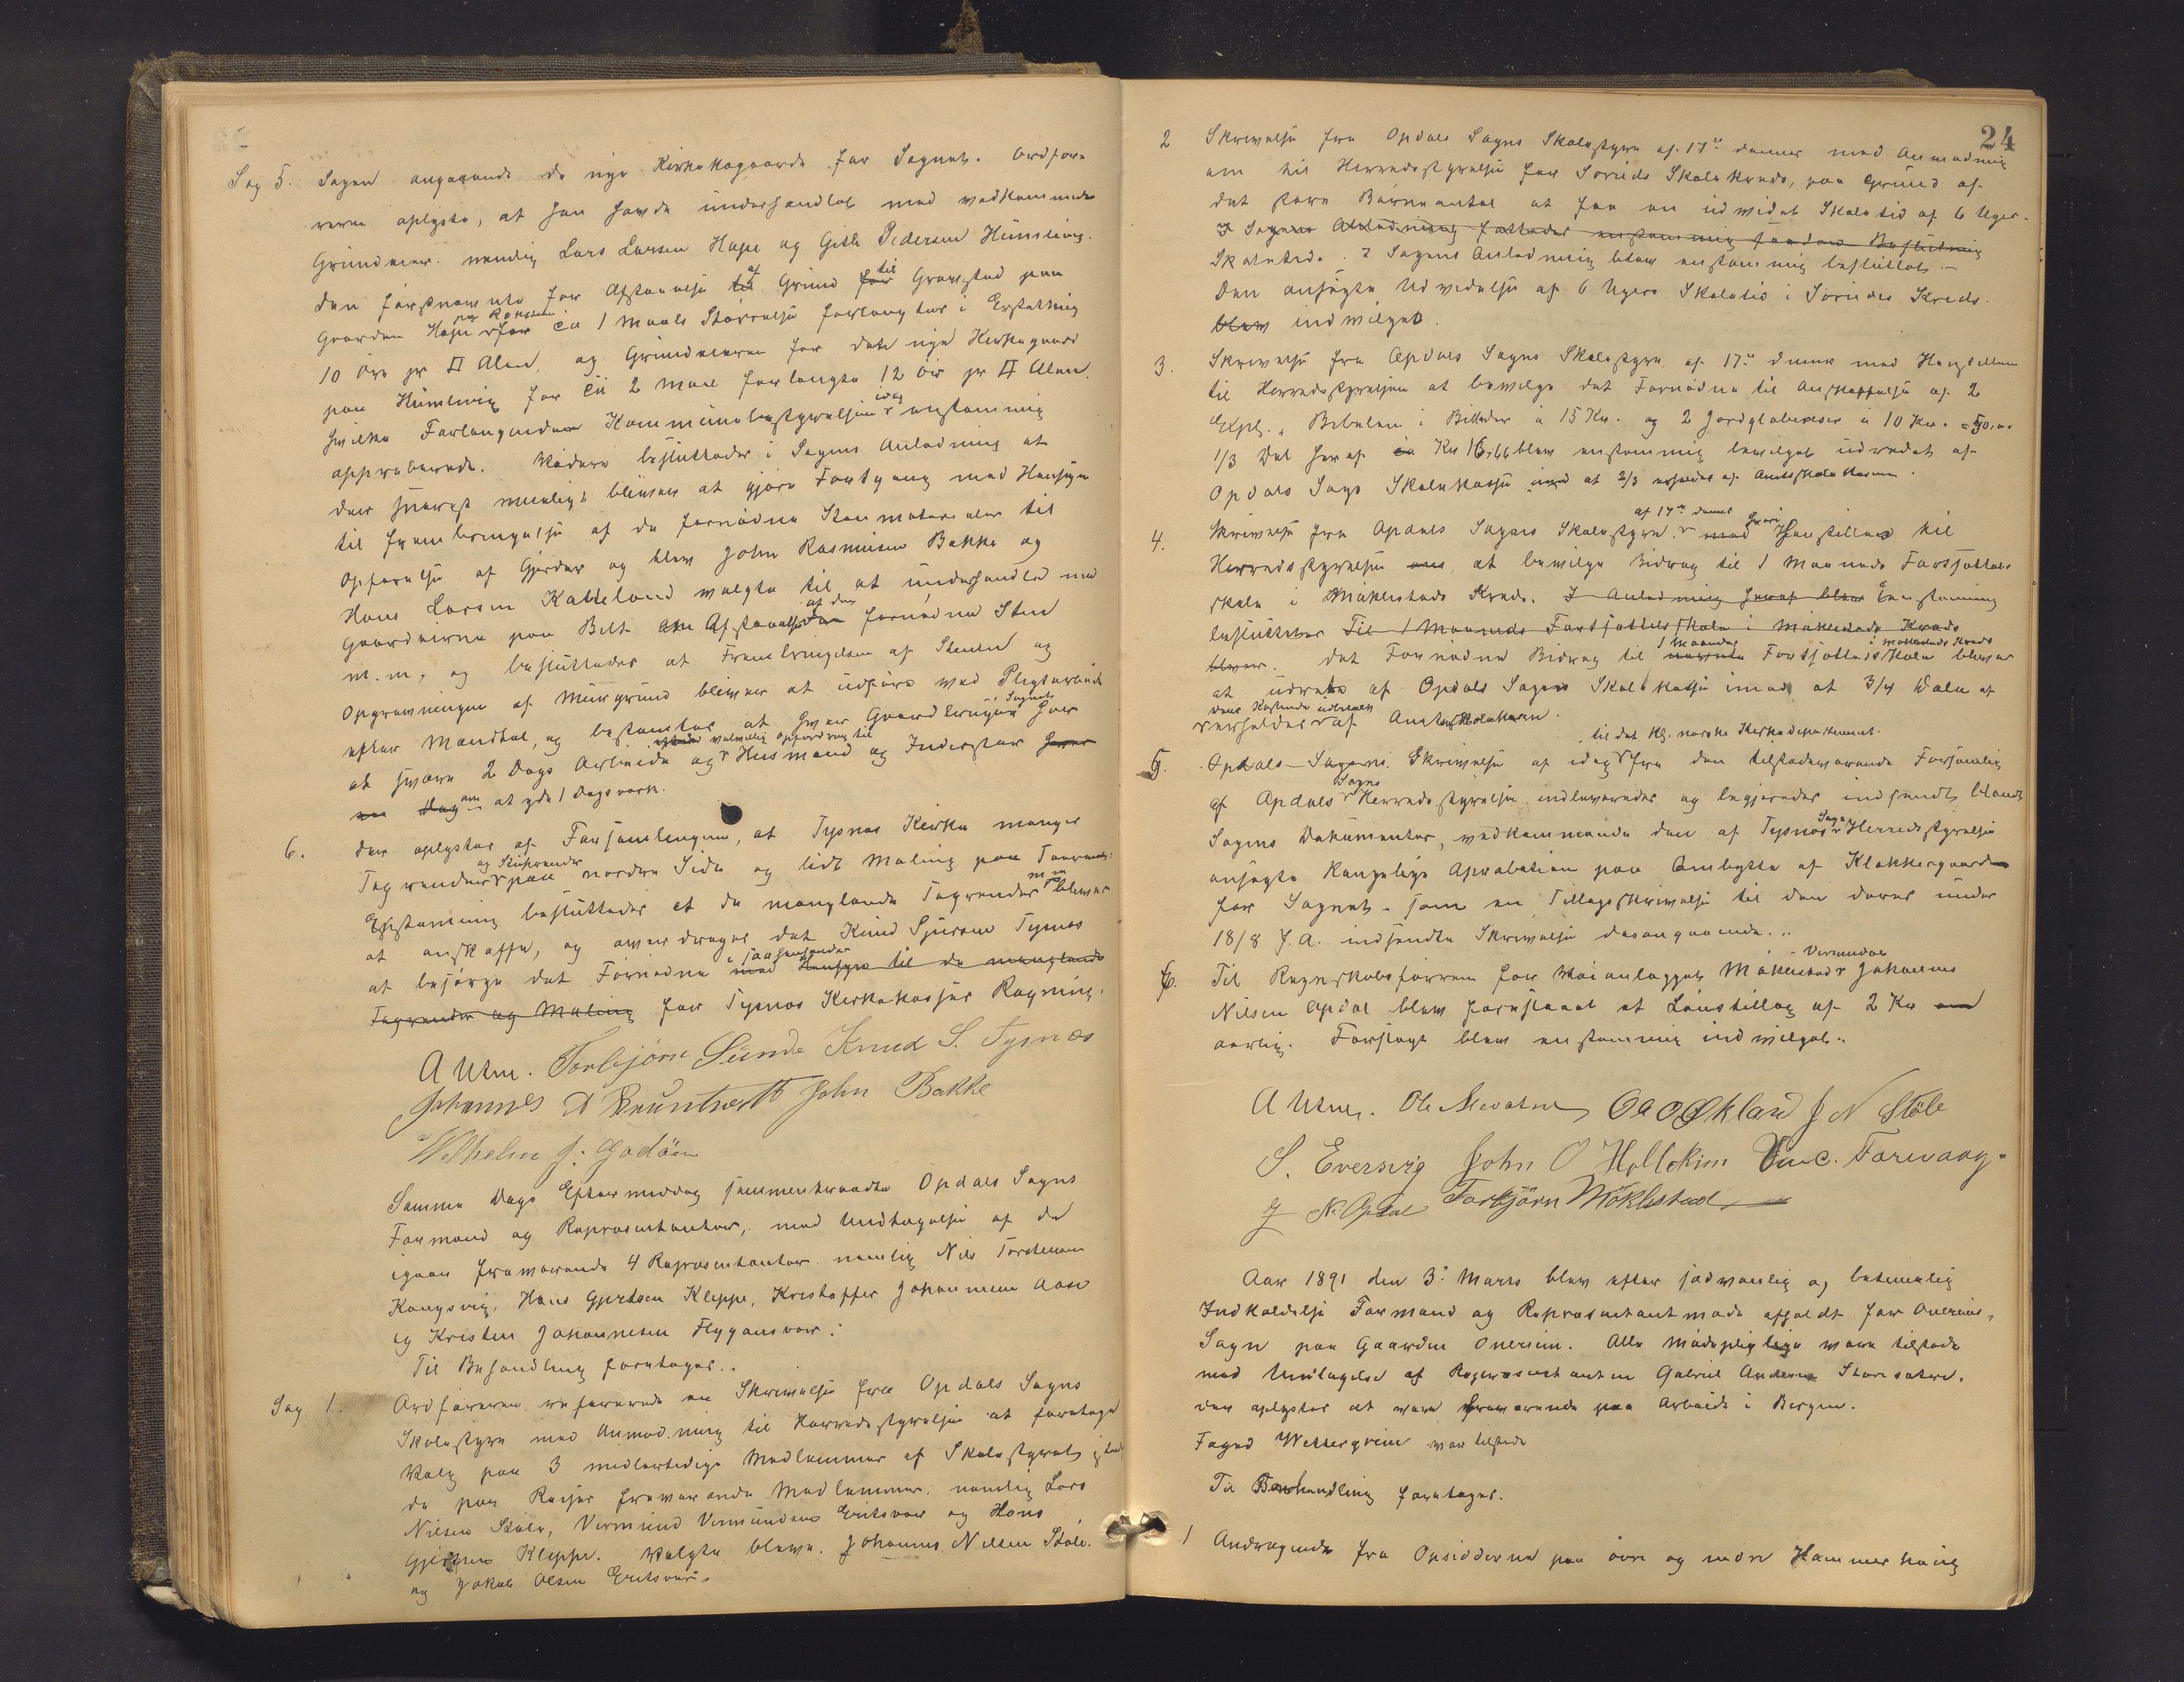 Sag 5. Sagen angaaende de nye Kirkekegaarde for Sognet. Ordfør-
reren oplyste, at han havde underhandlet med vedkommende
Grundeier. nemlig Lars Larsen Hope og Gitle Pedersen Humlevig.
den førstnævnte for Afstaaelse af Grund til Gravsted paa
Gaarden Hope for ca 1 Maals Størrelse forlangtes i Erstatning
10 Øre pr □ Alen, og Grundeieren for dete nye Kirkegaard
paa Humlevig for ca 2 Maal forlangte 12 Øre pr □ Alen.
hvilke Forlangender Kommunebestyrelsen idag enstemmig
approberede. Videre besluttedes i Sagens Anledning at
der snarest muligt bliver at gjøre Fortgang med Hensyn
til frembringelse af de fornødne Stenmaterialer til
Opførelse af Gjerder og blev John Rasmusen Bakke og
Hans Larsen Katteland valgte til at underhandle med
Gaardeierne paa Belt om Afstaaelse af den fornødne Sten
m.m, og besluttedes at Frembringelsen af Stenen og
Opgravningen af Murgrund bliver at udføre ved Pligtarbeide
efter Mandtal, og bestemtes at hver Gaardbruger i Sognet har
at svare 2 Dags Arbeide og velvillig Opfordring til Husmænd og Inderster
om at yde 1 Dagsværk.
6. Der oplystes af Forsamlingen, at Tysnes Kirke mangler
Tagrender og Stuprender paa nordre Side og lidt Maling paa Taarnet.
Enstemmig besluttedes at de manglende Tagrender m m bliver
at anskaffe, og overdrages det Knud Sjursen Tysnes
at besørge det Fornødne i saahenseende med Hensyn til de manglende
Tagrender og Maling for Tysnes Kirkekasses Regning.
A Utne. Torbjørn Sunde Knud S. Tysnes
Johannes A Bruntveit John Bakke
Vilhelm J. Godøen
Samme Dags Eftermiddag sammentraadte Opdals Sogns
Formænd og Repræsentanter, med Undtagelse af de
igaar fraværende 4 Repræsentanter nemlig Nils Torstensen
Kongsvig, Hans Gjertsen Kleppe, Kristoffer Johannesen Aase
og Kristen Johannesen Flygansvær.
Til Behandling foretoges..
Sag 1. Ordføreren refererede en Skrivelse fra Opdals Sogns
Skolestyre med Anmodning til Herredsstyrelsen at foretage
Valg paa 3 midlertidige Medlemmer af Skolestyret istedet
de paa Reiser fraværende Medlemmer, nemlig Lars
Nilsen Støle, Vermund Vermundsen Eritsvær og Hans
Gjertsen Kleppe. Valgte bleve. Johannes Nilsen Støle.
og Jakob Olsen Eritsvær.
24
2 Skrivelse fra Opdals Sogns Skolestyre af 17de dennes med Anmodning
om hos Herredsstyrelse for Søreids Skolekreds, paa Grund af
det store Børneantal at faa en udvidet Skoletid af 6 Uger.
I Sagens Anledning fattedes enstemmig saadan Beslutning
Skoletid. I Sagens Anledning blev enstemmig besluttet. –
Den ansøgte Udvidelse af 6 Ugers Skoletid i Søreides Kreds
blev indvilget.
3. Skrivelse fra Opdals Sogns Skolestyre af 17de dennes med Henstillen
til Herredsstyrelsen at bevilge det Fornødne til Anskaffelse af 2
Expl. „Bibelen i Billeder à 15 Kr. og 2 Jordglobusser à 10 Kr. = 50,00
1/3 Del heraf ca Kr 16,66 blev enstemmig bevilget udredet af
Opdals Sogns Skolekasse imod at 2/3 erholdes af Amtsskolekassen.
4. Skrivelse fra Opdals Sogns Skolestyre af 17de dennes hvori Henstilles til
Herredsstyrelsen om, at bevilge Bidrag til 1 Maaneds Fortsættels-
skole i Møklestads Kreds. I Anledning heraf blev Enstemmig
besluttedes Til 1 Maaneds Fortsættelsskole i Møklestads Kreds
bliver. det Fornødne Bidrag til 1 Maaneds nævnte Fortsættelsskole i Møklestads Kreds bliver
at udrede af Opdals Sogns Skolekasse imod at 3/4 Dele af
dens Kostende udbetales erholdes af Amtsskolekassen.
5. Opdals Sogns Skrivelse af idag til det Kgl. norske Kirkedepartement. fra den tilstedeværende Forsamling
af Opdals Sogns Herredsstyrelse indleveredes og begjæredes indsendt blandt
Sagens Dokumenter, vedkommende den af Tysnes Sogns Herredsstyrelse
ansøgte Kongelige Aprobation paa Ombytte af Klokkergaarden
for Sognet. som en Tillægsskrivelse til den deres under
18/8 f.A. indsendte Skrivelse desangaaende..
6. Til Regnskabsføreren for Veianlægget Møklestad Vermedal Johannes
Nilsen Opdal blev foreslaaet et Lønstillæg af 2 Kr
aarlig. Forslaget blev enstemmig indvilget..
A Utne. Ole Nevatne O A O Økland J N Støle
S. Eversvig John O Hollekim Vinc. Farevaag.
J N. Opdal Torbjørn Møklestad
Aar 1891 den 3. Marts blev efter sædvanlig og betimelig
Indkaldelse Formænd og Repræsentantmøde afholdt for Onereims
Sogn paa Gaarden Onereim. Alle Mødepligtige vare tilstede
med Undtagelse af Repræsentanten Gabriel Andersen Storesætre.
der oplystes at være fraværende paa Arbeide i Bergen.
Foged Wettergreen var tilstede
Til Behandling foretoges.
1 Andragende fra Opsidderne paa øvre og nedre Hammerhaug